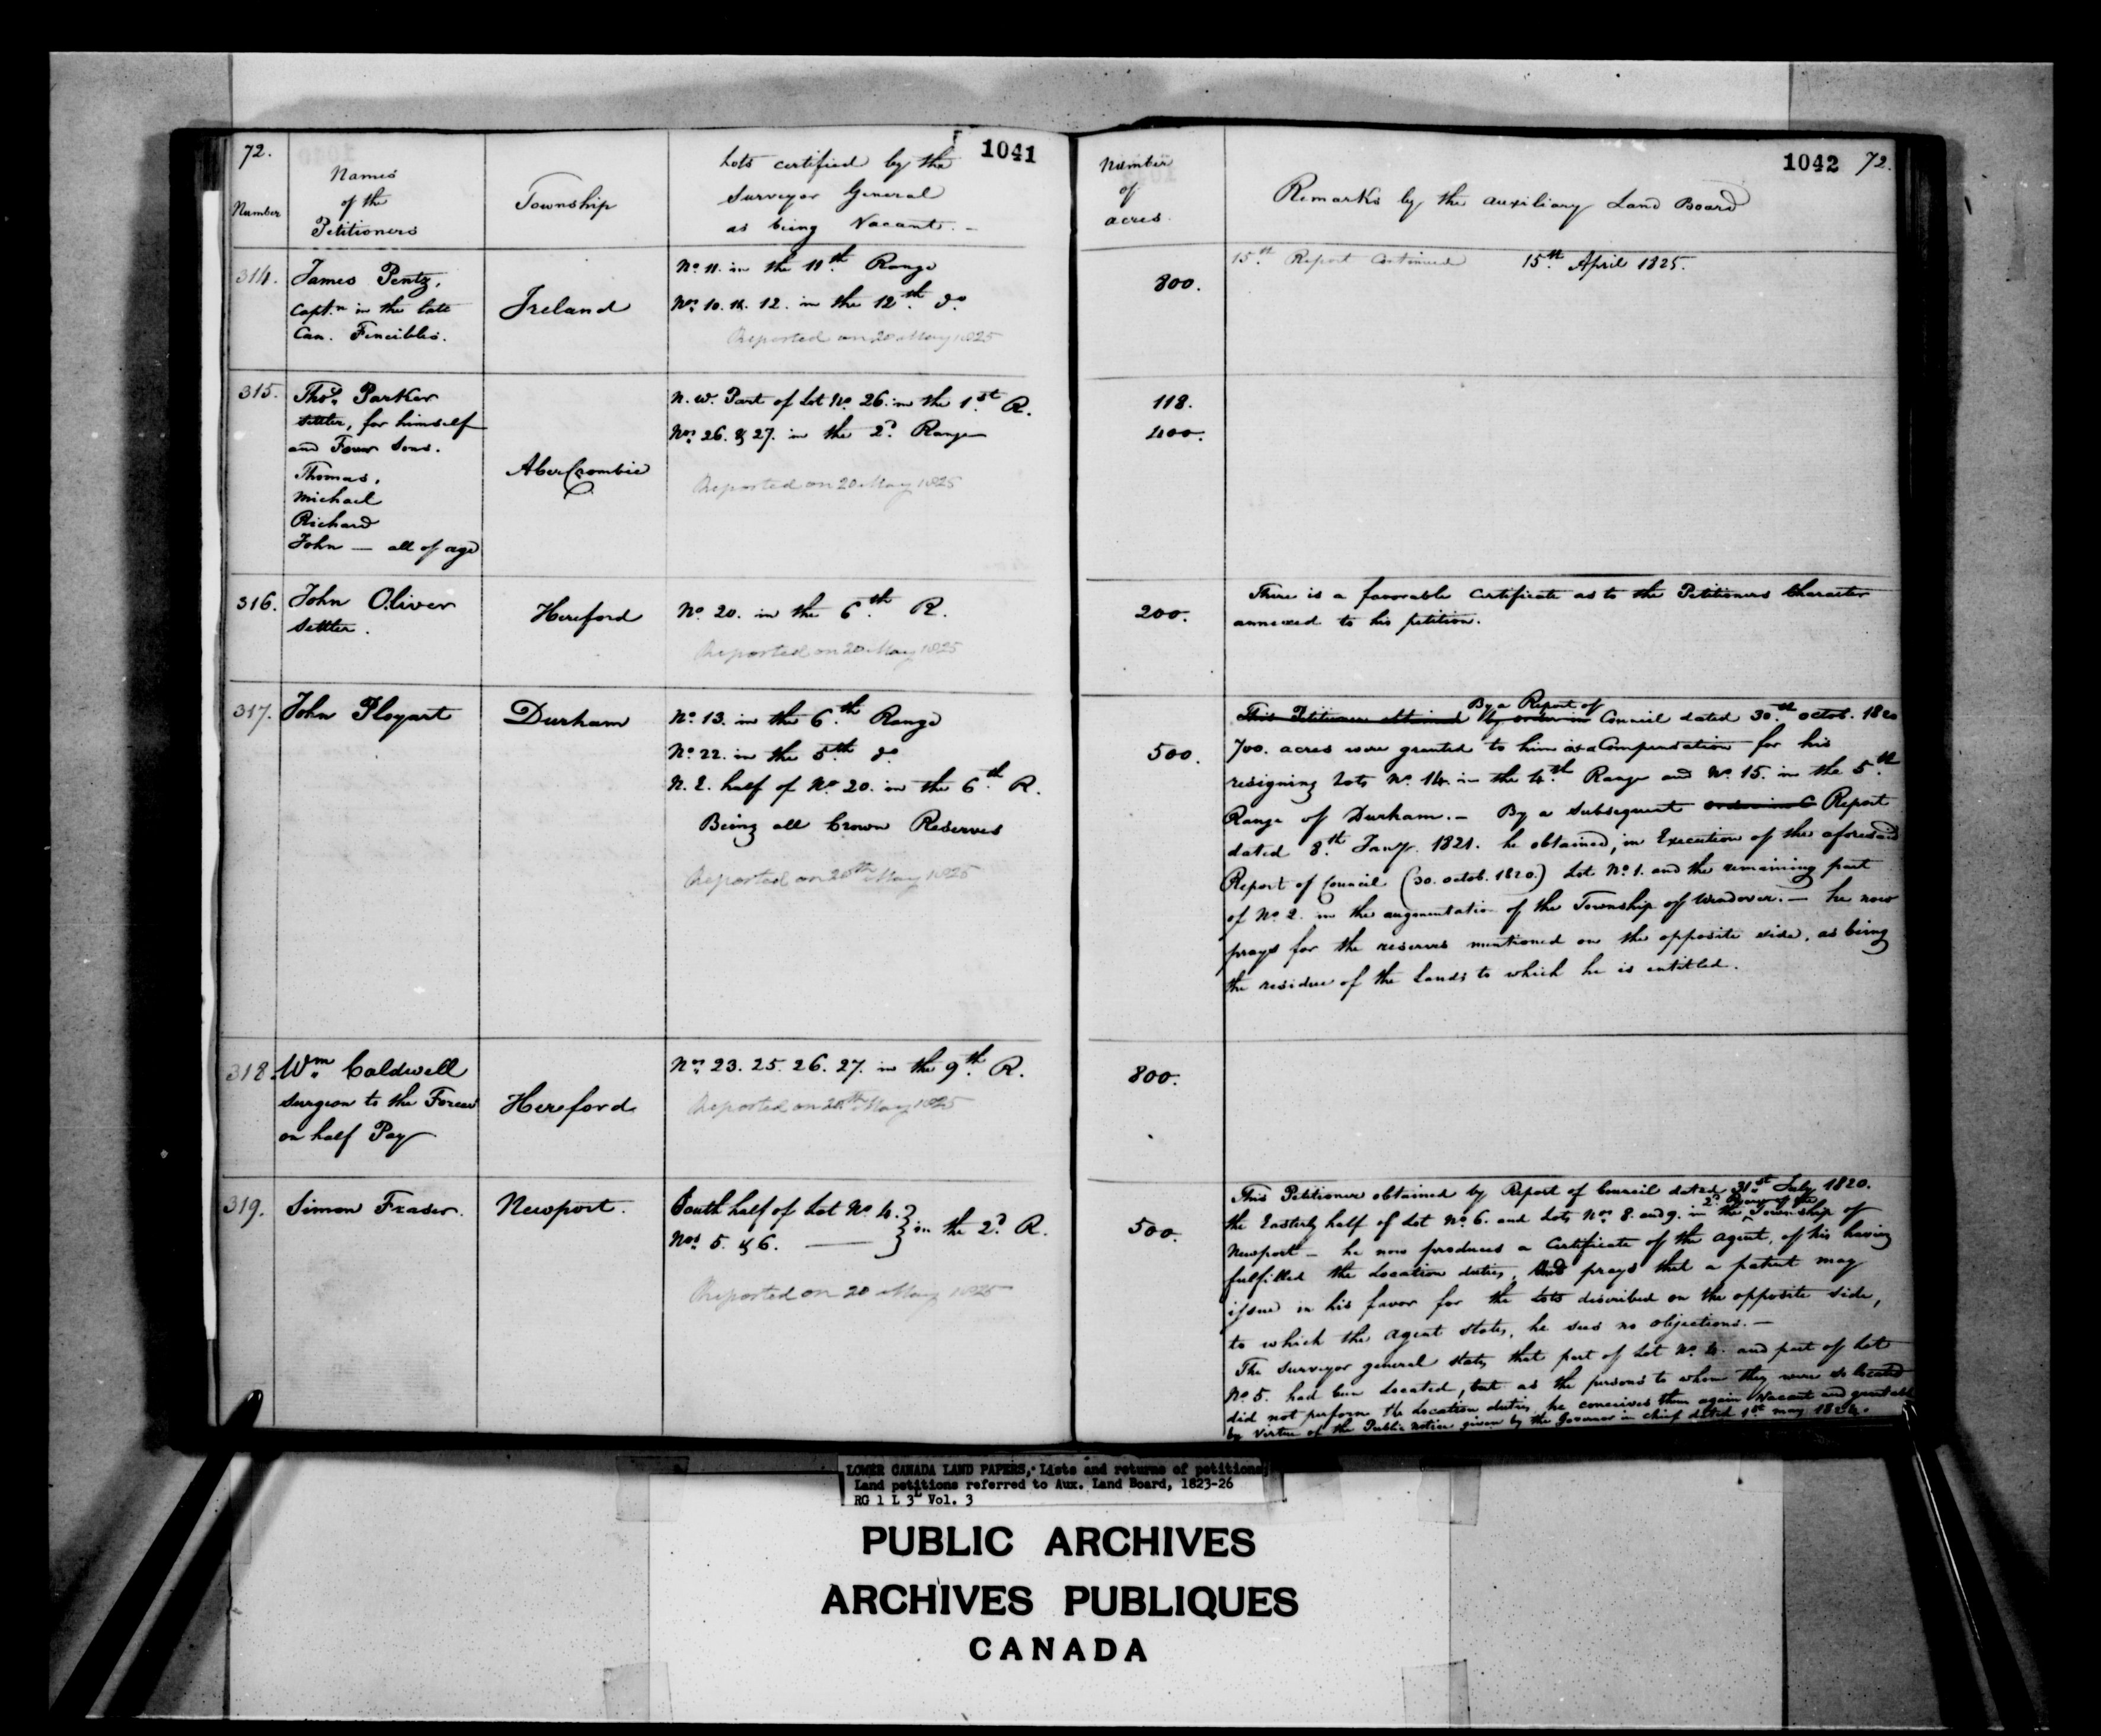 72.
1041
Number
Names
of the
Petitioners
Township
Lots certified by the
Surveyor General
as being Vacant. -
314.
James Pentz,
Capt.n in the late
Can. Fencibles.
Ireland
No. 11. in the 11th. Range
Nos. 10. 11. 12. in the 12th. do.
Reported on 20 May 1825
315.
Thos. Parker
Settler, for himself
and Four Sons.
Thomas,
Michael
Richard
John — all of age
AberCrombie
N. W. Part of Lot No. 26. in the 1.st R.
Nos. 26. & 27. in the 2d. Range
Reported on 20 May 1825
316.
John Oliver
Settler.
Hereford
No. 20. in the 6th. R.
Reported on 20 May 1825
317.
John Ployart
Durham
No. 13. in the 6.th Range
No. 22. in the 5th. do.
N. E. half of No. 20. in the 6th. R.
Being all Crown Reserves
Reported on 20th May 1825
318.
Wm. Caldwell
Surgeon to the Forces
on half Pay
Hereford
Nos. 23. 25. 26. 27. in the 9th. R.
Reported on 20th May 1825
319.
Simon Fraser.
Newport.
South half of Lot No. 4. } in the 2d. R.
Nos 5. & 6. —
Reported on 20 May 1825
Number
of
acres.
1042 72.
Remarks by the Auxiliary Land Board
15th. Report Continued 15th. April 1825.
800.
118.
400.
200.
There is a favorable Certificate as to the Petitioners Character
annexed to his petition.
500.
By a Report of
This Petitioner obtained by order in Council dated 30.th octob. 1820
700. acres were granted to him as a Compensation for his
resigning Lots No. 14. in the 4.th Range and No. 15. in the 5.th
Range of Durham. - By a Subsequent order in C Report
dated 8.th Jany. 1821. he obtained, in Execution of the aforesaid
Report of Council (30. octob. 1820.) Lot No. 1. and the remaining part
of No. 2. in the augmentation of the Township of Wendover. — he now
prays for the reserves mentioned on the opposite side, as being
the residue of the Lands to which he is entitled.
800.
500.
This Petitioner obtained by Report of Council dated 31st. July 1820.
2d. Range of the
the Easterly half of Lot No. 6. and Lots Nos. 8. and 9. in the Township of
Newport - he now produces a Certificate of the Agent, of his having
fulfilled the Location duties, And prays that a patent may
issue in his favor for the Lots described on the opposite side,
to which the Agent states, he sees no objections. —
The Surveyor general states that part of Lot No. 4. and part of Lot
No. 5. had been Located, but as the persons to whom they were so located
did not perform the Location duties he conceives them again Vacant and grantable
by virtue of the Public notice given by the Governor in chief dated 1st may 1824.
LOWER CANADA LAND PAPERS, Lists and returns of petitions;
Land petitions referred to Aux. Land Board, 1823-26
RG 1 L 3L Vol. 3
PUBLIC ARCHIVES
ARCHIVES PUBLIQUES
CANADA